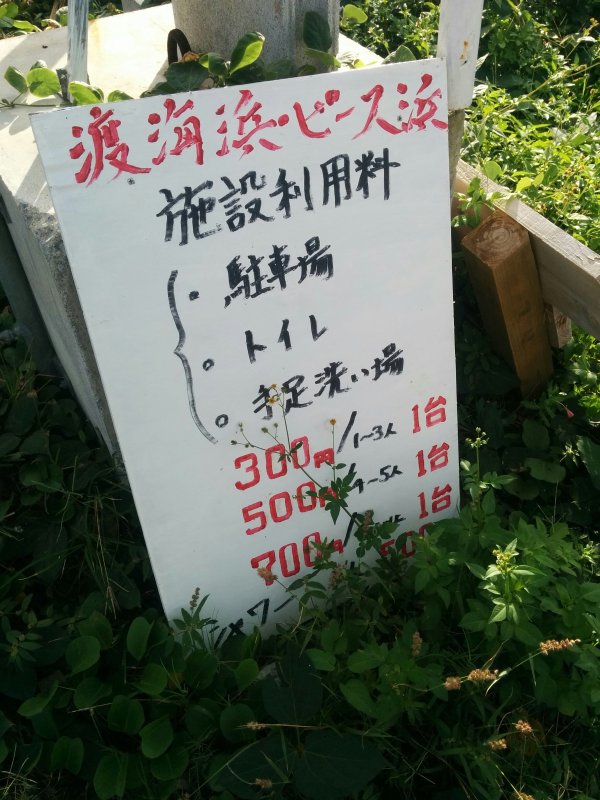 渡海浜・ピース浜
施設利用料
・駐車場
。トイレ
。手足洗い場
300円/1~3人 1台
500円/4~5人 1台
700円/ 1台
500